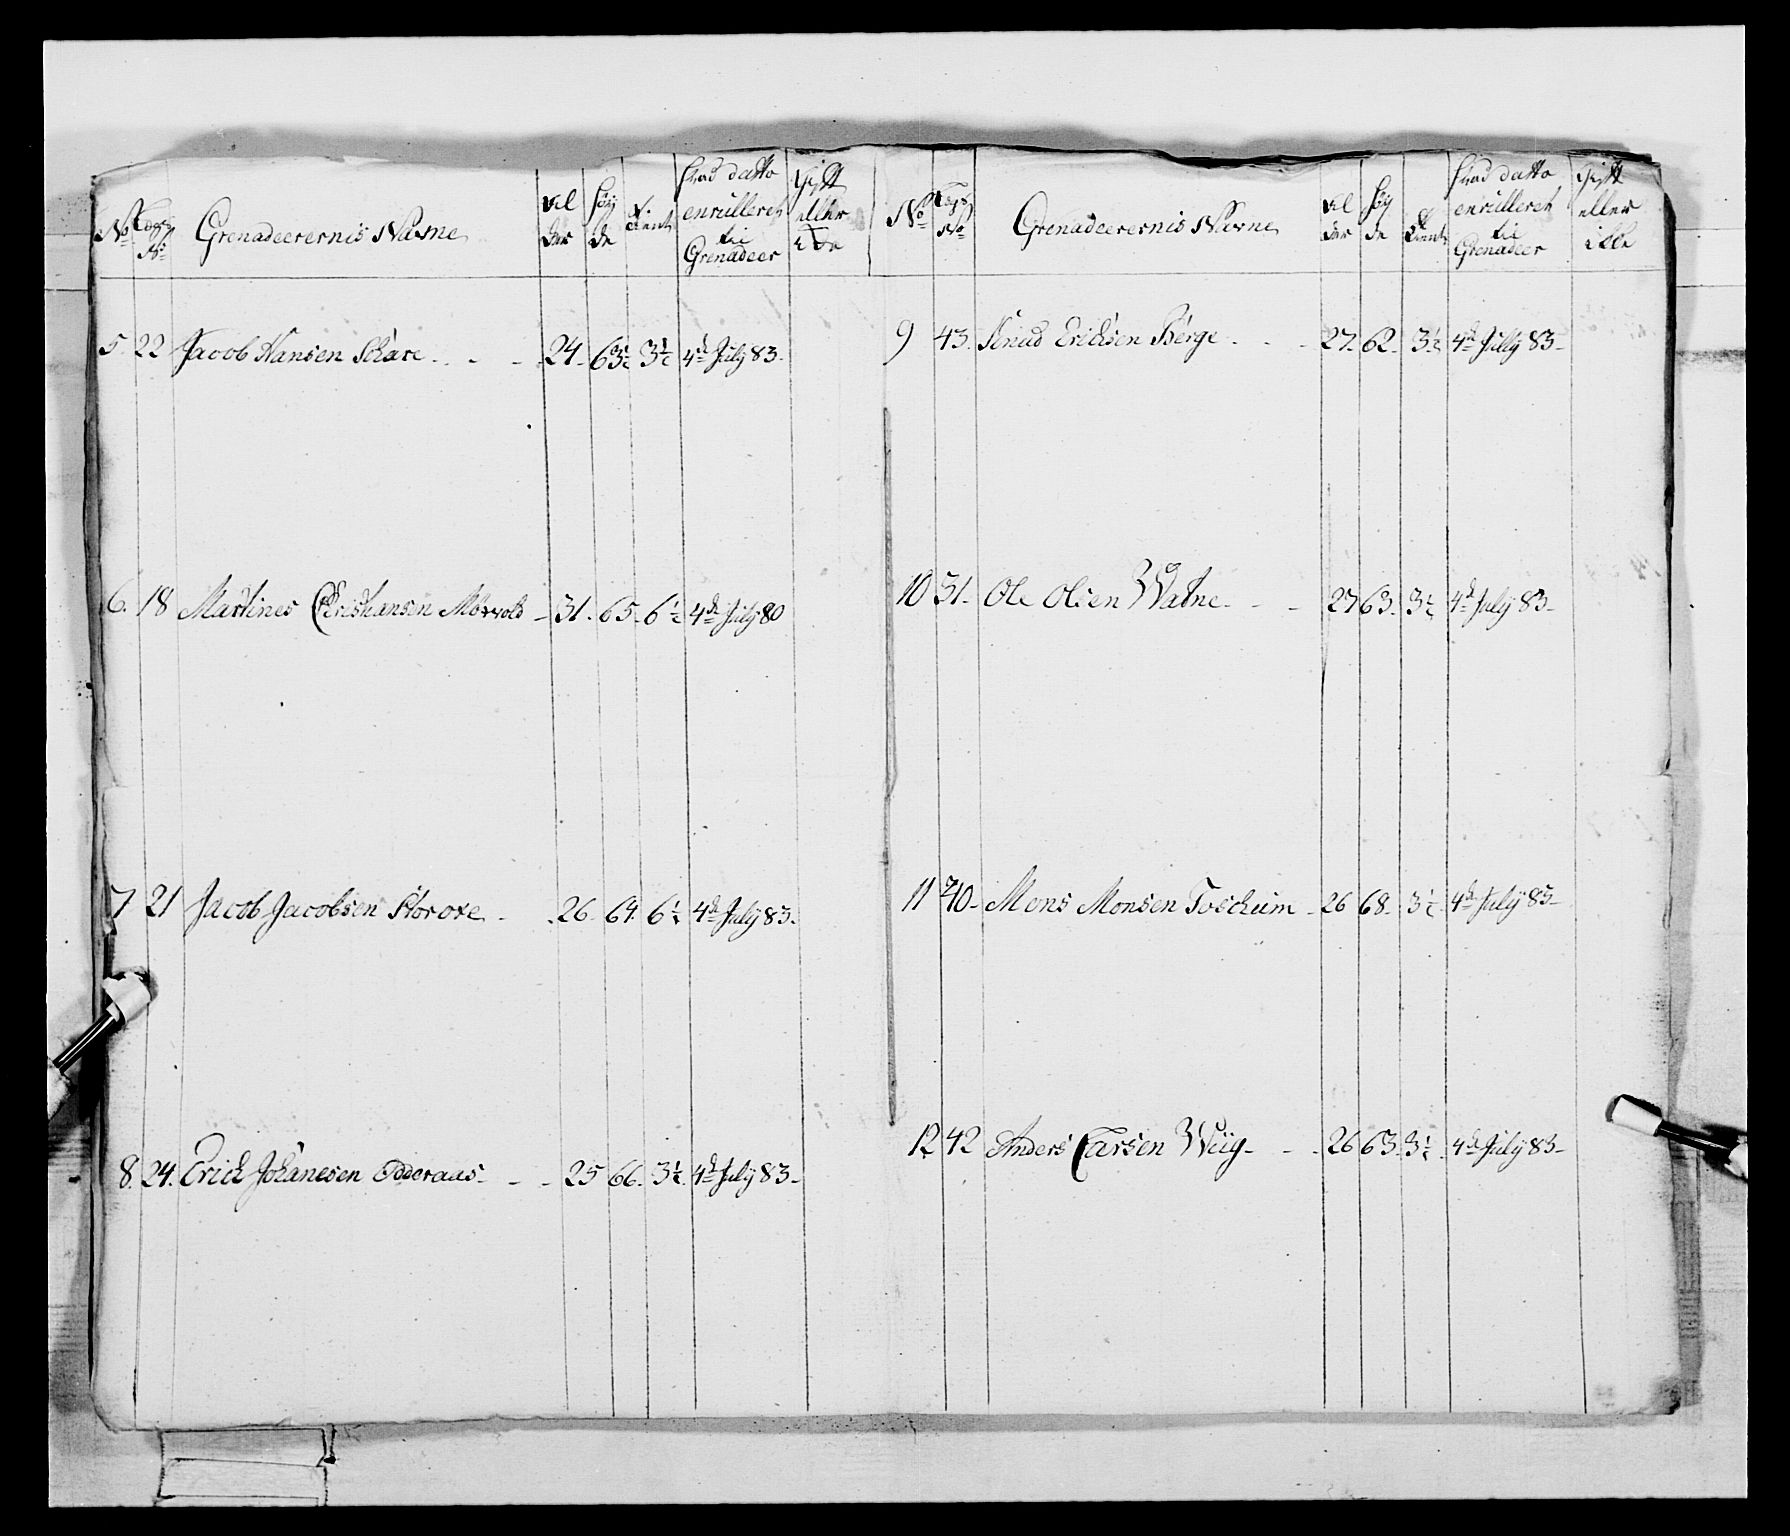 No Legs No Grenadeerernis Navne Al der Høy de Tient hvad datto enrulleret til Grenadeer Gift eller ikke
5. 22 Jacob Hansen Schare - - - 24. 63½ 3½ 4de July 83.
6. 18 Martines Christiansen Mørvold - 31. 65. 6½ 4de July 80
7 21 Jacob Jacobsen Storoxe - 26. 64. 6½ 4de July 83.
8. 24. Erich Johanesen Odderaas - - - 25 66. 3½ 4de July 83.
No Legs No Grenadeerernis Navne Al der Høy de Tient hvad datto enrulleret til Grenadeer Gift eller ikke
9 43. Knud Erichsen Berge - - - 27. 62. 3½ 4de July 83.
10 31. Ole Olsen Watne - - - 27 63. 3½ 4de July 83.
11 40. Mons Monsen Toscheim - 26 68. 3½ 4de July 83.
12 42 Anders Larsen Wiig - - - 26 63. 3½ 4de July 83.